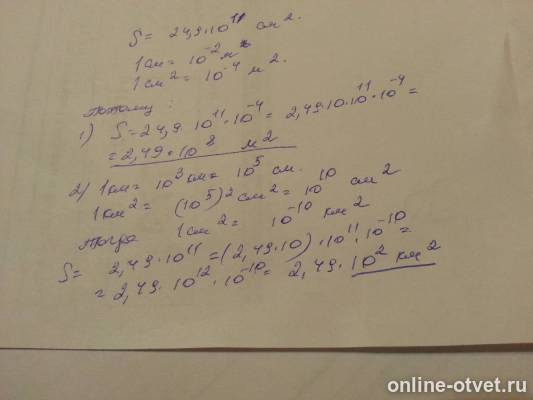 S = 24,9·10¹¹ см².
1см = 10⁻² м
1см² = 10⁻⁴ м².
Потому :
1) S = 24,9·10¹¹·10⁻⁴ = 2,49·10·10¹¹·10⁻⁴ =
= 2,49·10⁸ м²
2) 1км = 10³ км = 10⁵ см.
1км² = (10⁵)² см² = 10¹⁰ см²
Тогда 1см² = 10⁻¹⁰ км²
S = 2,49·10¹¹ = (2,49·10)·10¹¹·10⁻¹⁰ =
= 2,49·10¹²·10⁻¹⁰ = 2,49·10² км²
online-otvet.ru